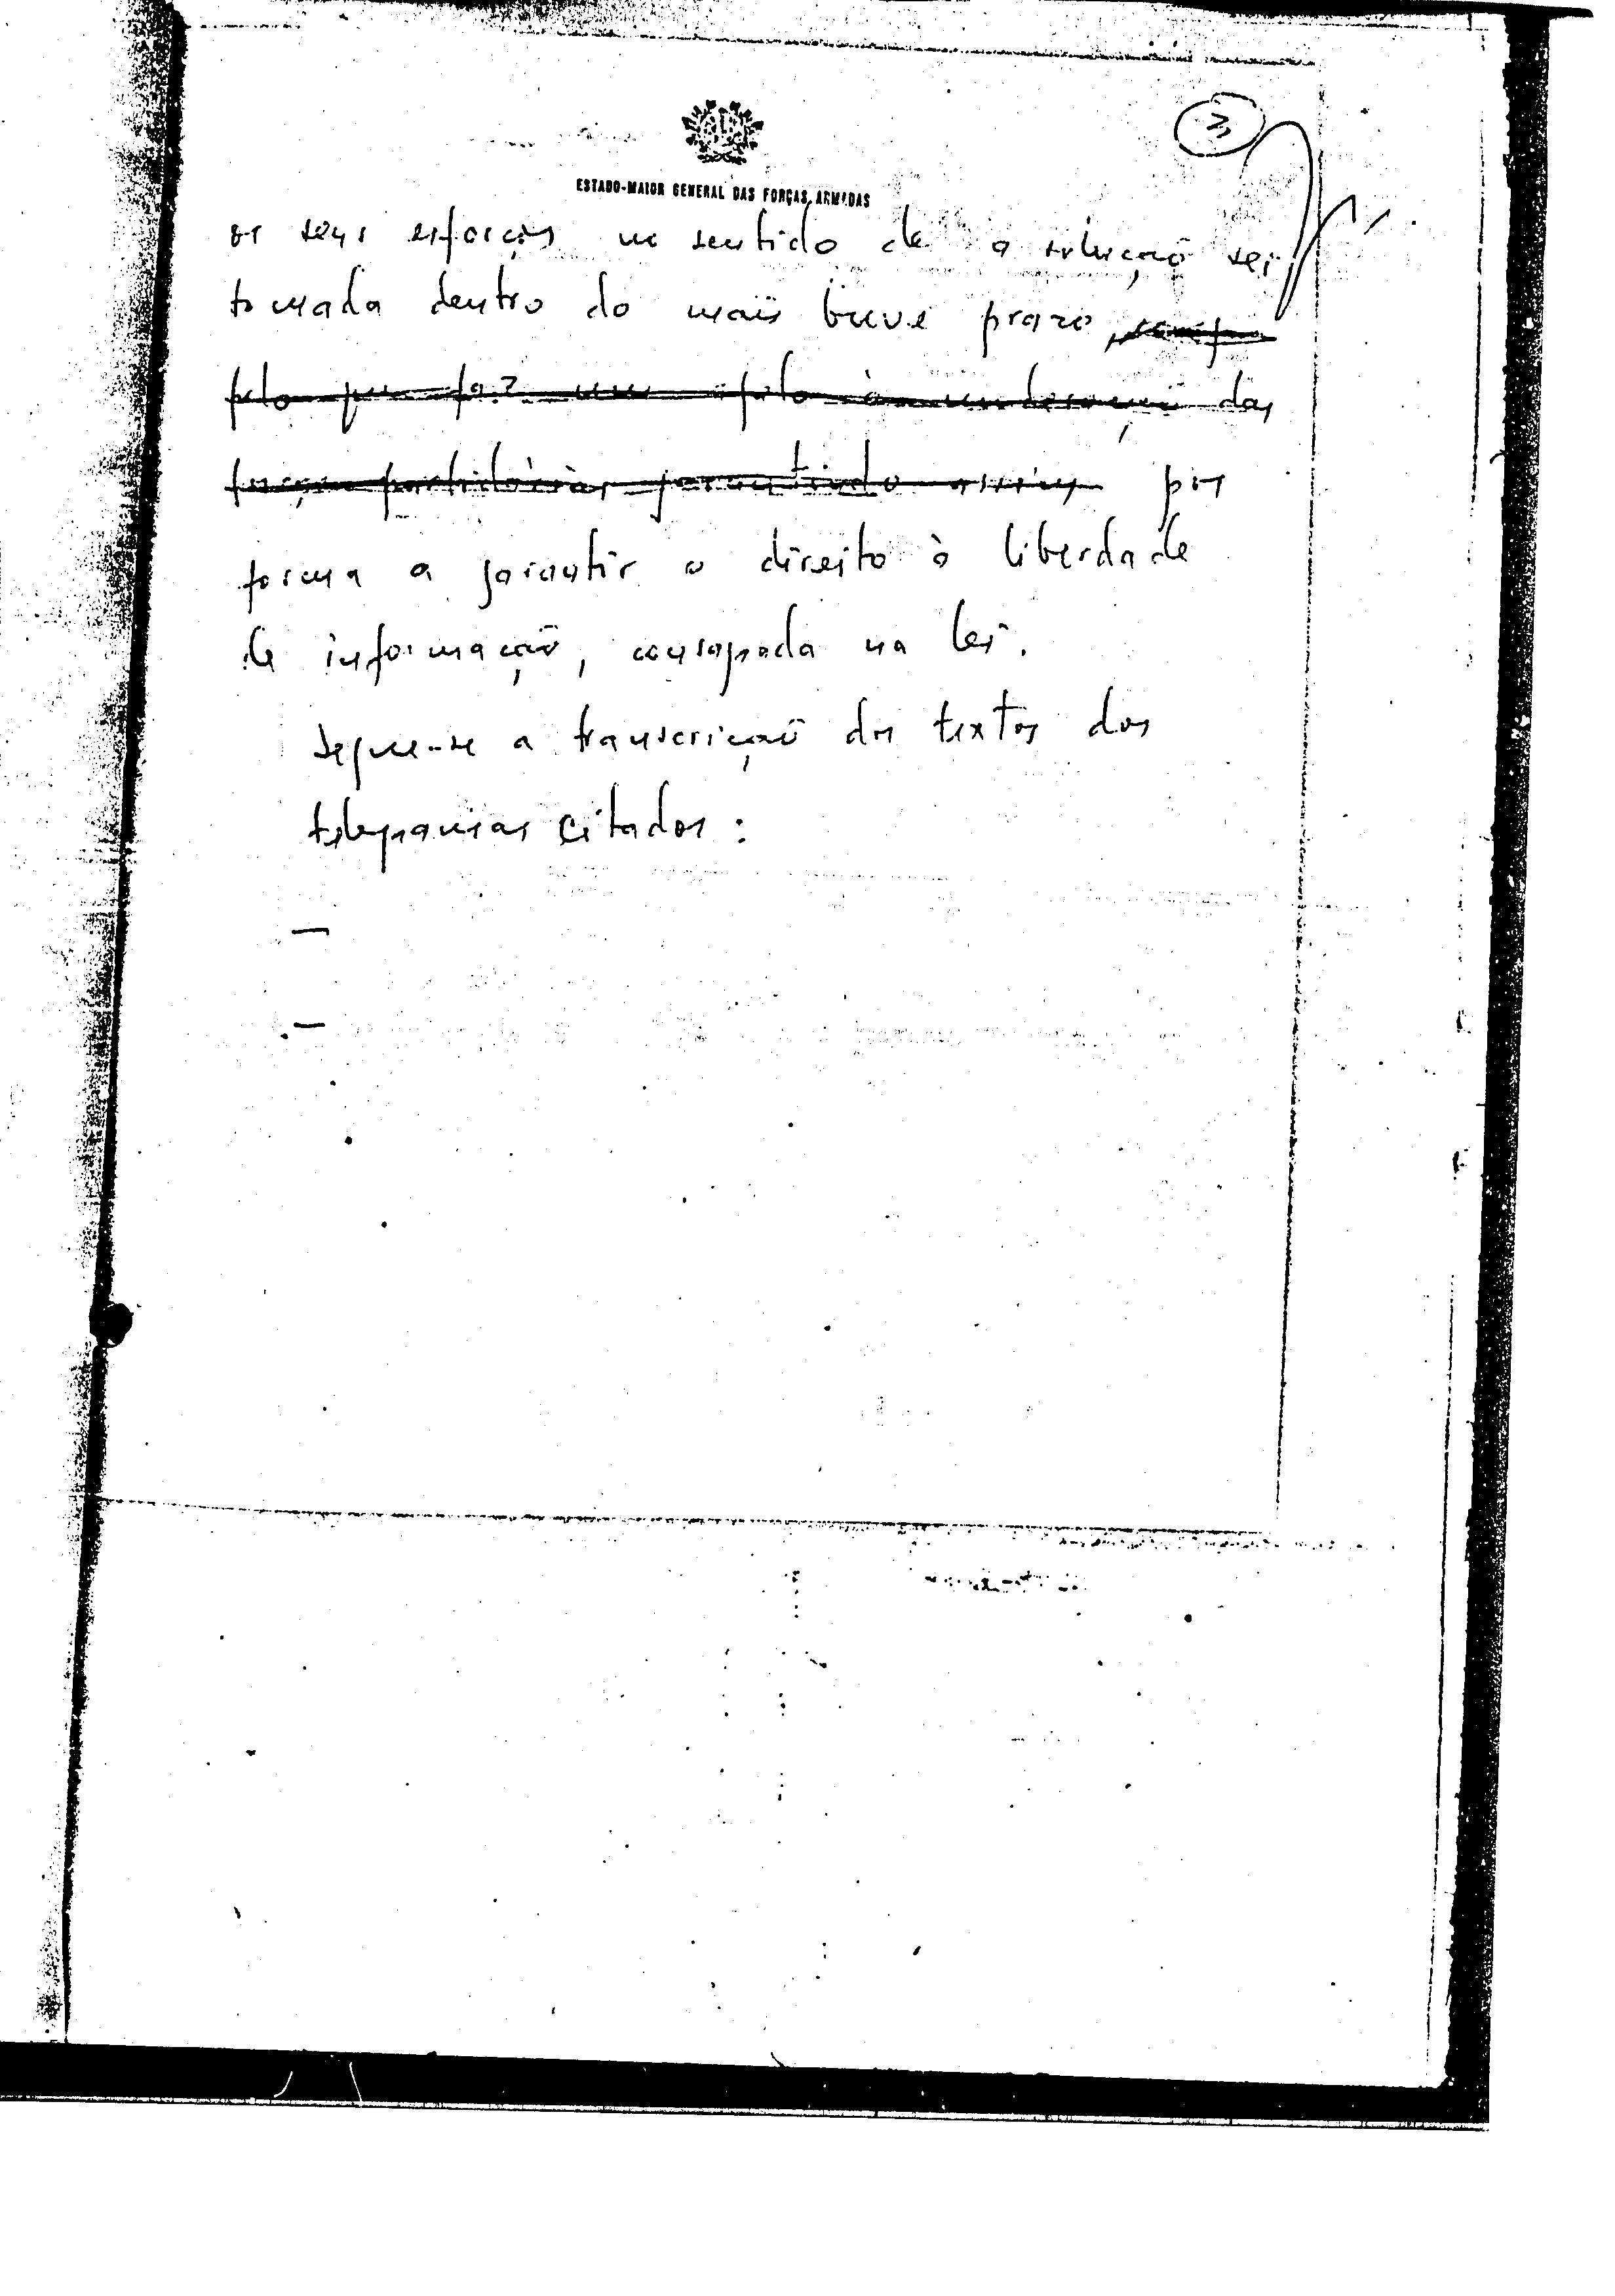 3
ESTADO-MAIOR GENERAL DAS FORÇAS ARMADAS
os seus esforços no sentido de a solução ser
tomada dentro do mais breve prazo,
pelo que faz um apelo à moderação das
forças partidárias garantindo assim por
forma a garantir o direito à liberdade
de informação, consagrada na lei.
Segue-se a transcrição dos textos dos
telegramas citados:
—
—